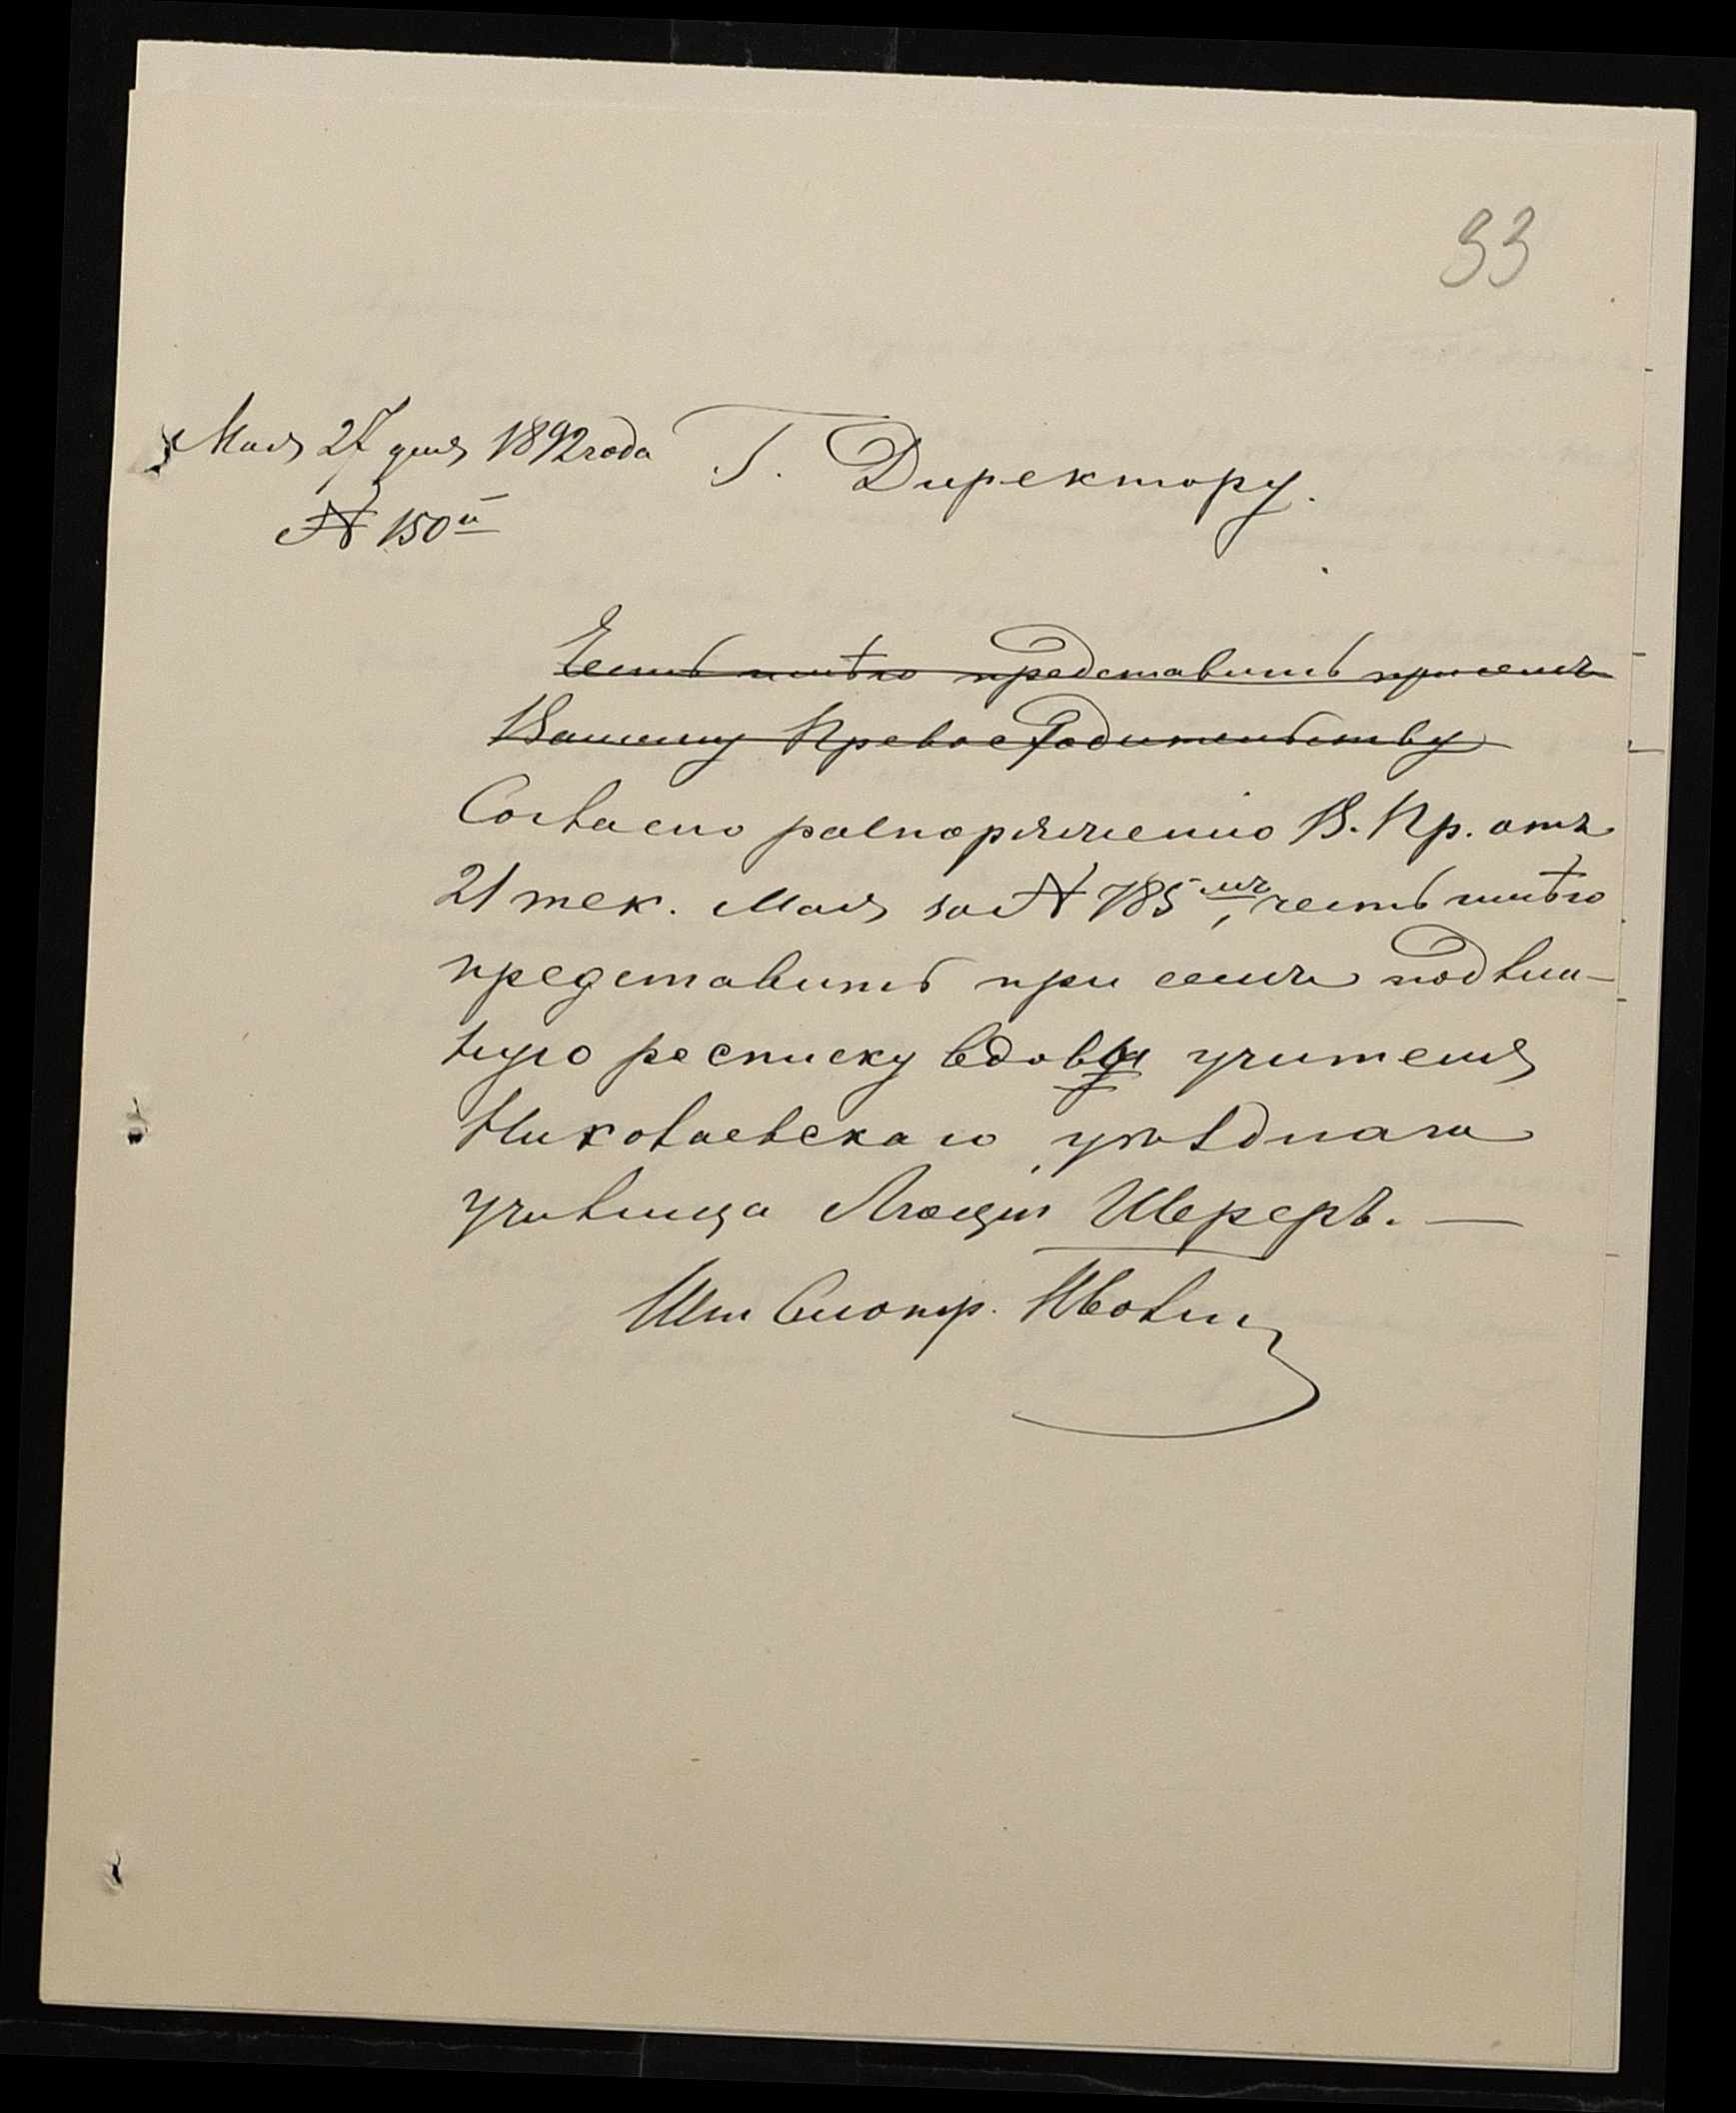 33
Мая 27 дня 1892 года
Г. Директору.
№ 150й
Честь имѣю представить при семъ
Вашему Превосходительству
Согласно распоряженію В. Пр. отъ
21 тек. Мая за № 785мъ, честь имѣю
представить при семъ подлин-
ную росписку вдовы учителя
Николаевскаго уѣзднаго
училища Шереръ.
Шт Смотр.